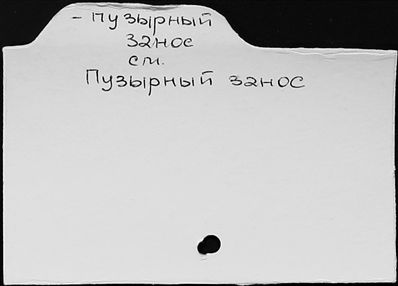 - Пузырный
занос
см.
Пузырный занос